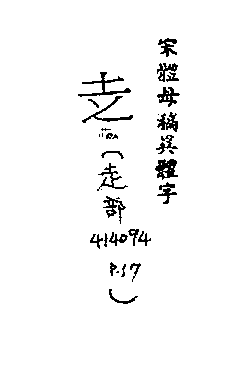 宋體母稿異體字
(走部
414094
P.17
)